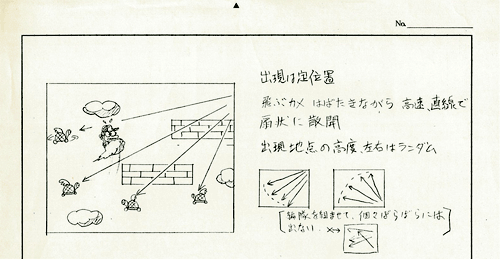 No.
出現は定位置
飛ぶカメ はばたきながら 高速、直線で
扇状に散開
出現地点の高度、左右はランダム
編隊を組ませて、個々ばらばらには
出ない.